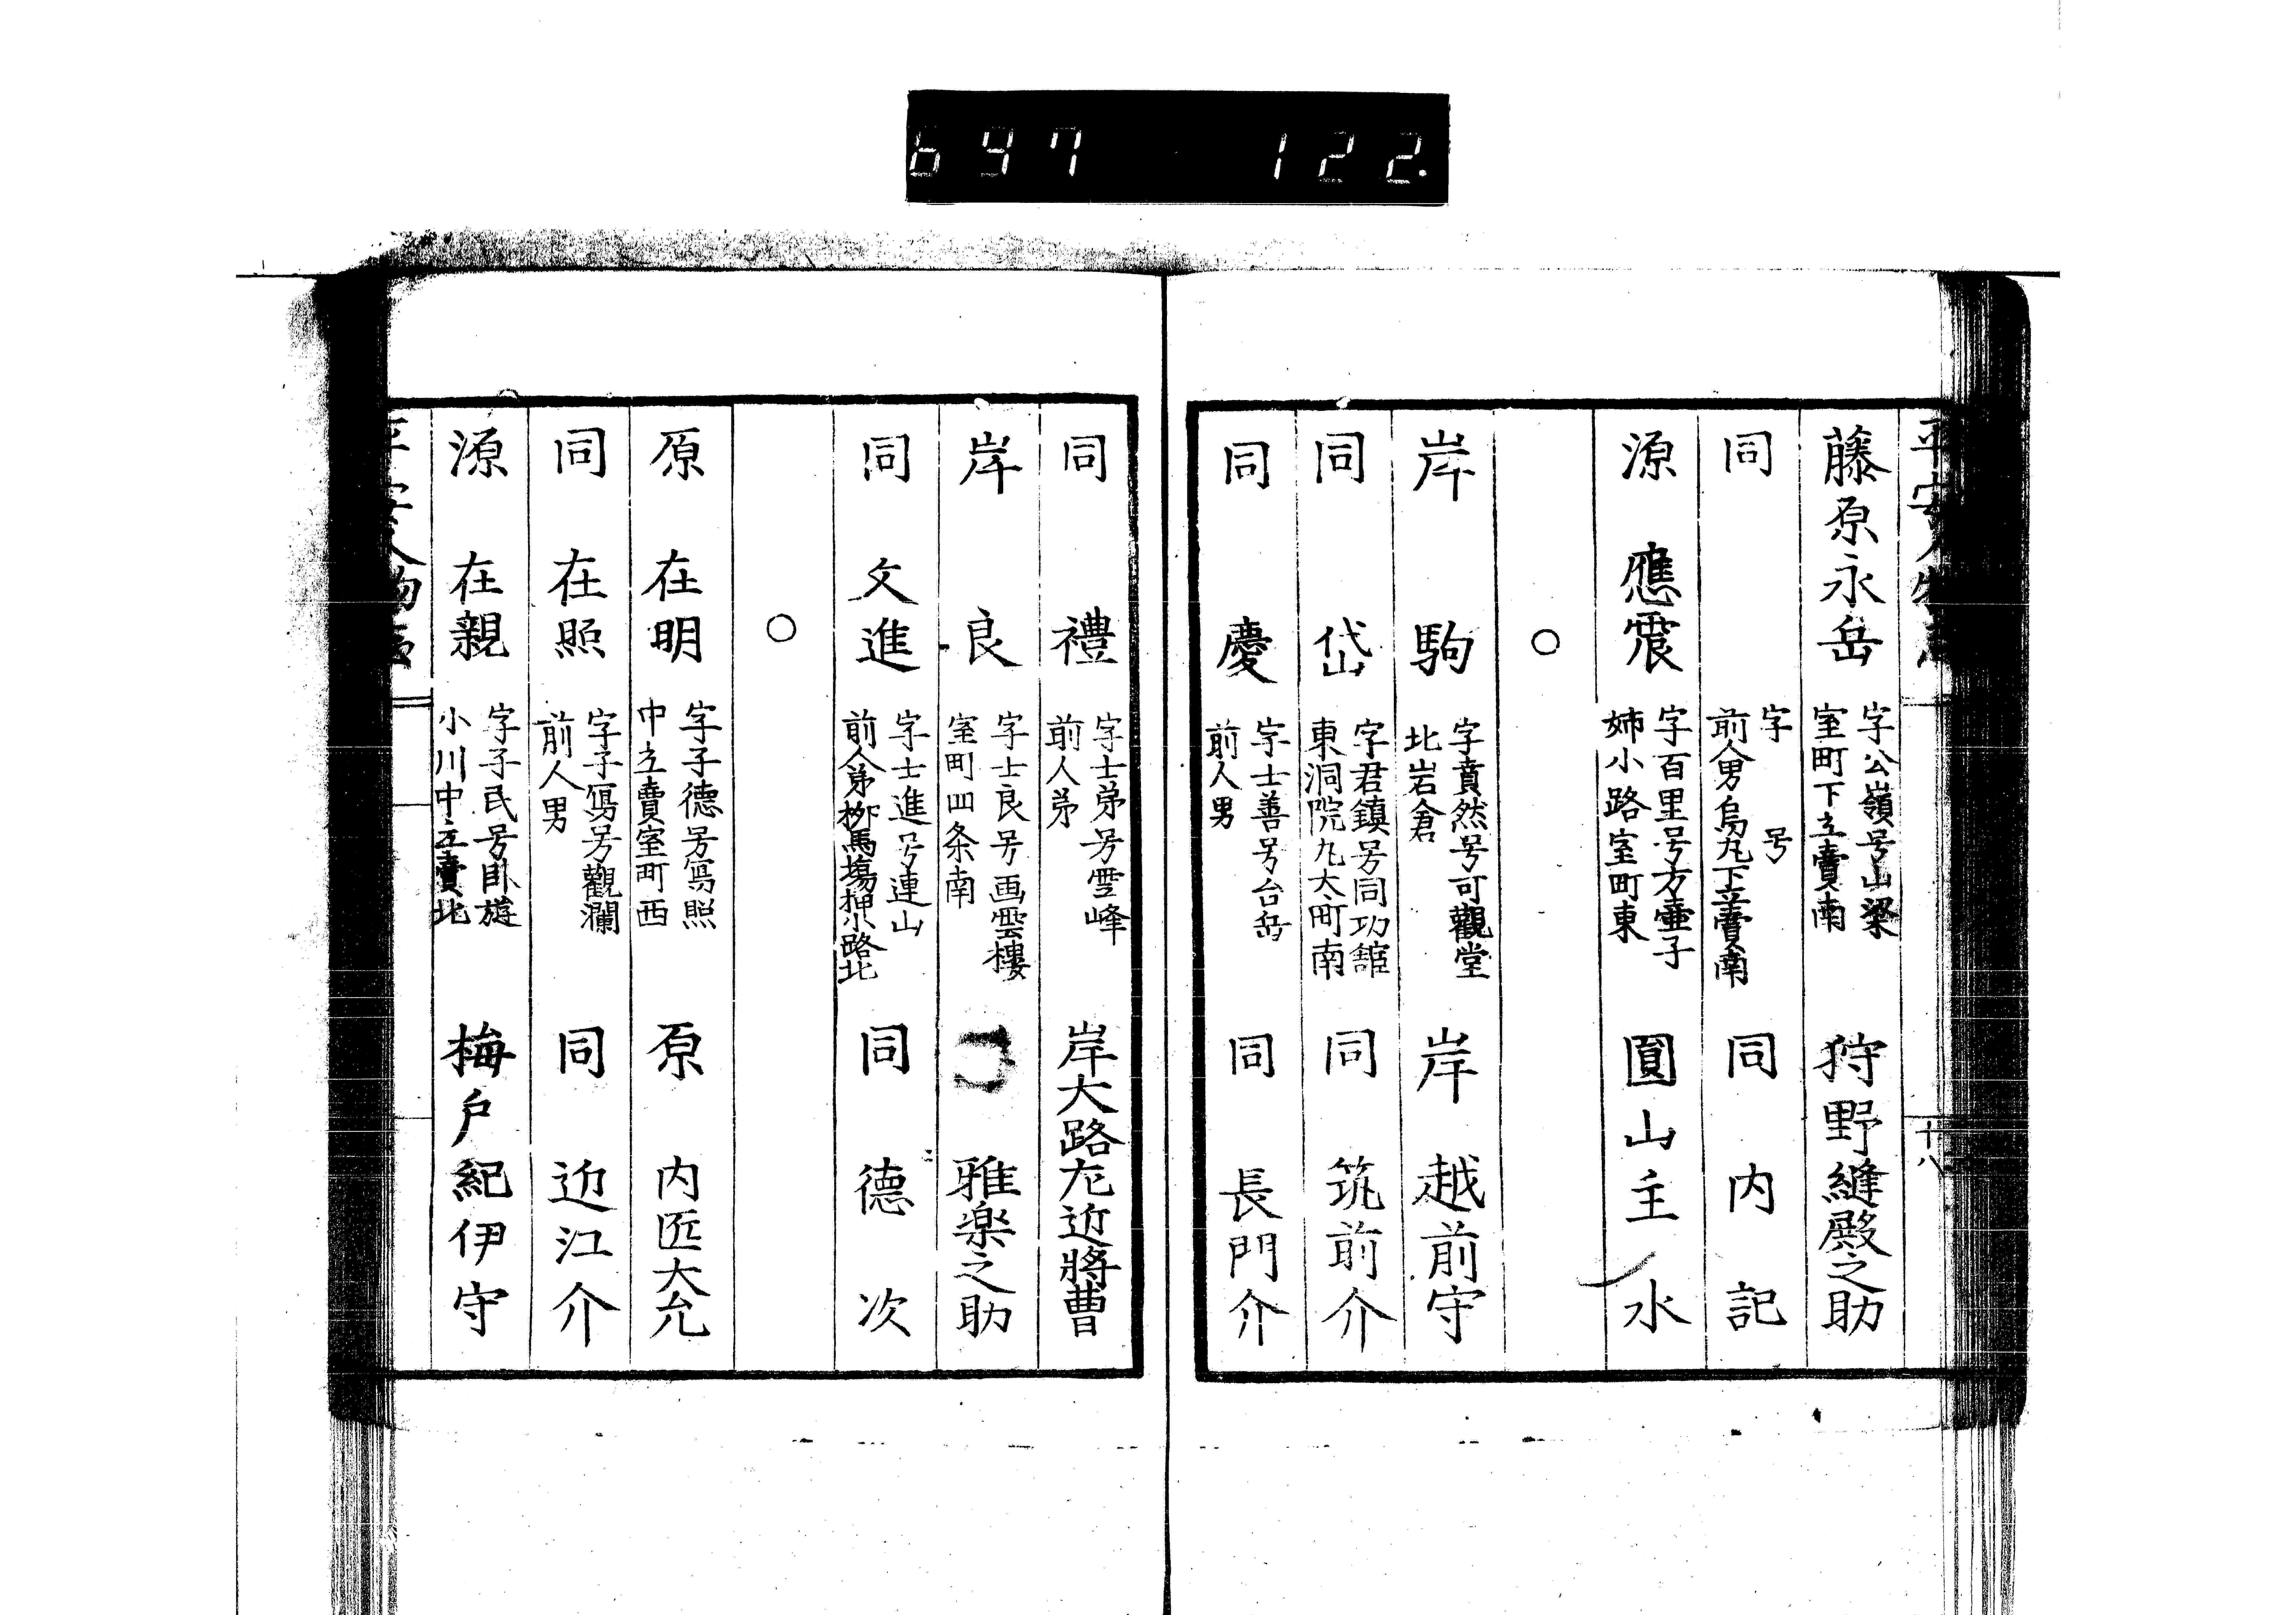 697 122.
平安人物志
十八
藤原永岳 字公嶺号山梁 狩野縫殿之助
室町下立賣南
同 字 号 同内記
前人男烏丸下立賣南
源應震 字百里号方壷子 圓山主水
姉小路室町東
○
岸駒 字賁然号可觀堂 岸越前守
北岩倉
同岱 字君鎮号同功舘 同筑前介
東洞院丸太町南
同慶 字士善号台岳 同長門介
前人男
同禮 字士弟号雪峰 岸大路左近將曹
前人弟
岸良 字士良号画雲樓 雅楽之助
室町四条南
同文進 字士進号連山 同德次
前人弟栁馬塲押小路北
○
原在明 字子德号寫照 原内匠大允
中立賣室町西
同在照 字子寫号觀瀾 同近江介
前人男
源在親 字子民号臥遊 梅戸紀伊守
小川中立賣北
平安人物志